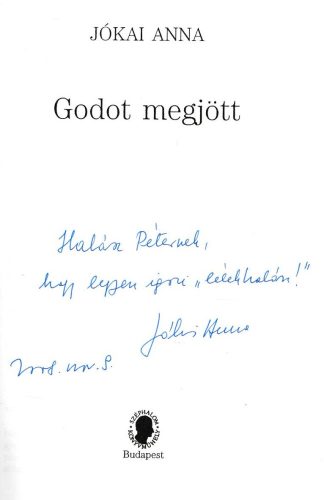 JÓKAI ANNA
Godot megjött
Halász Péternek,
hogy legyen igazi „lélekhalász!”
Jókai Anna
2008. nov. 9.
SZÉPHALOM
KÖNYVMŰHELY
Budapest